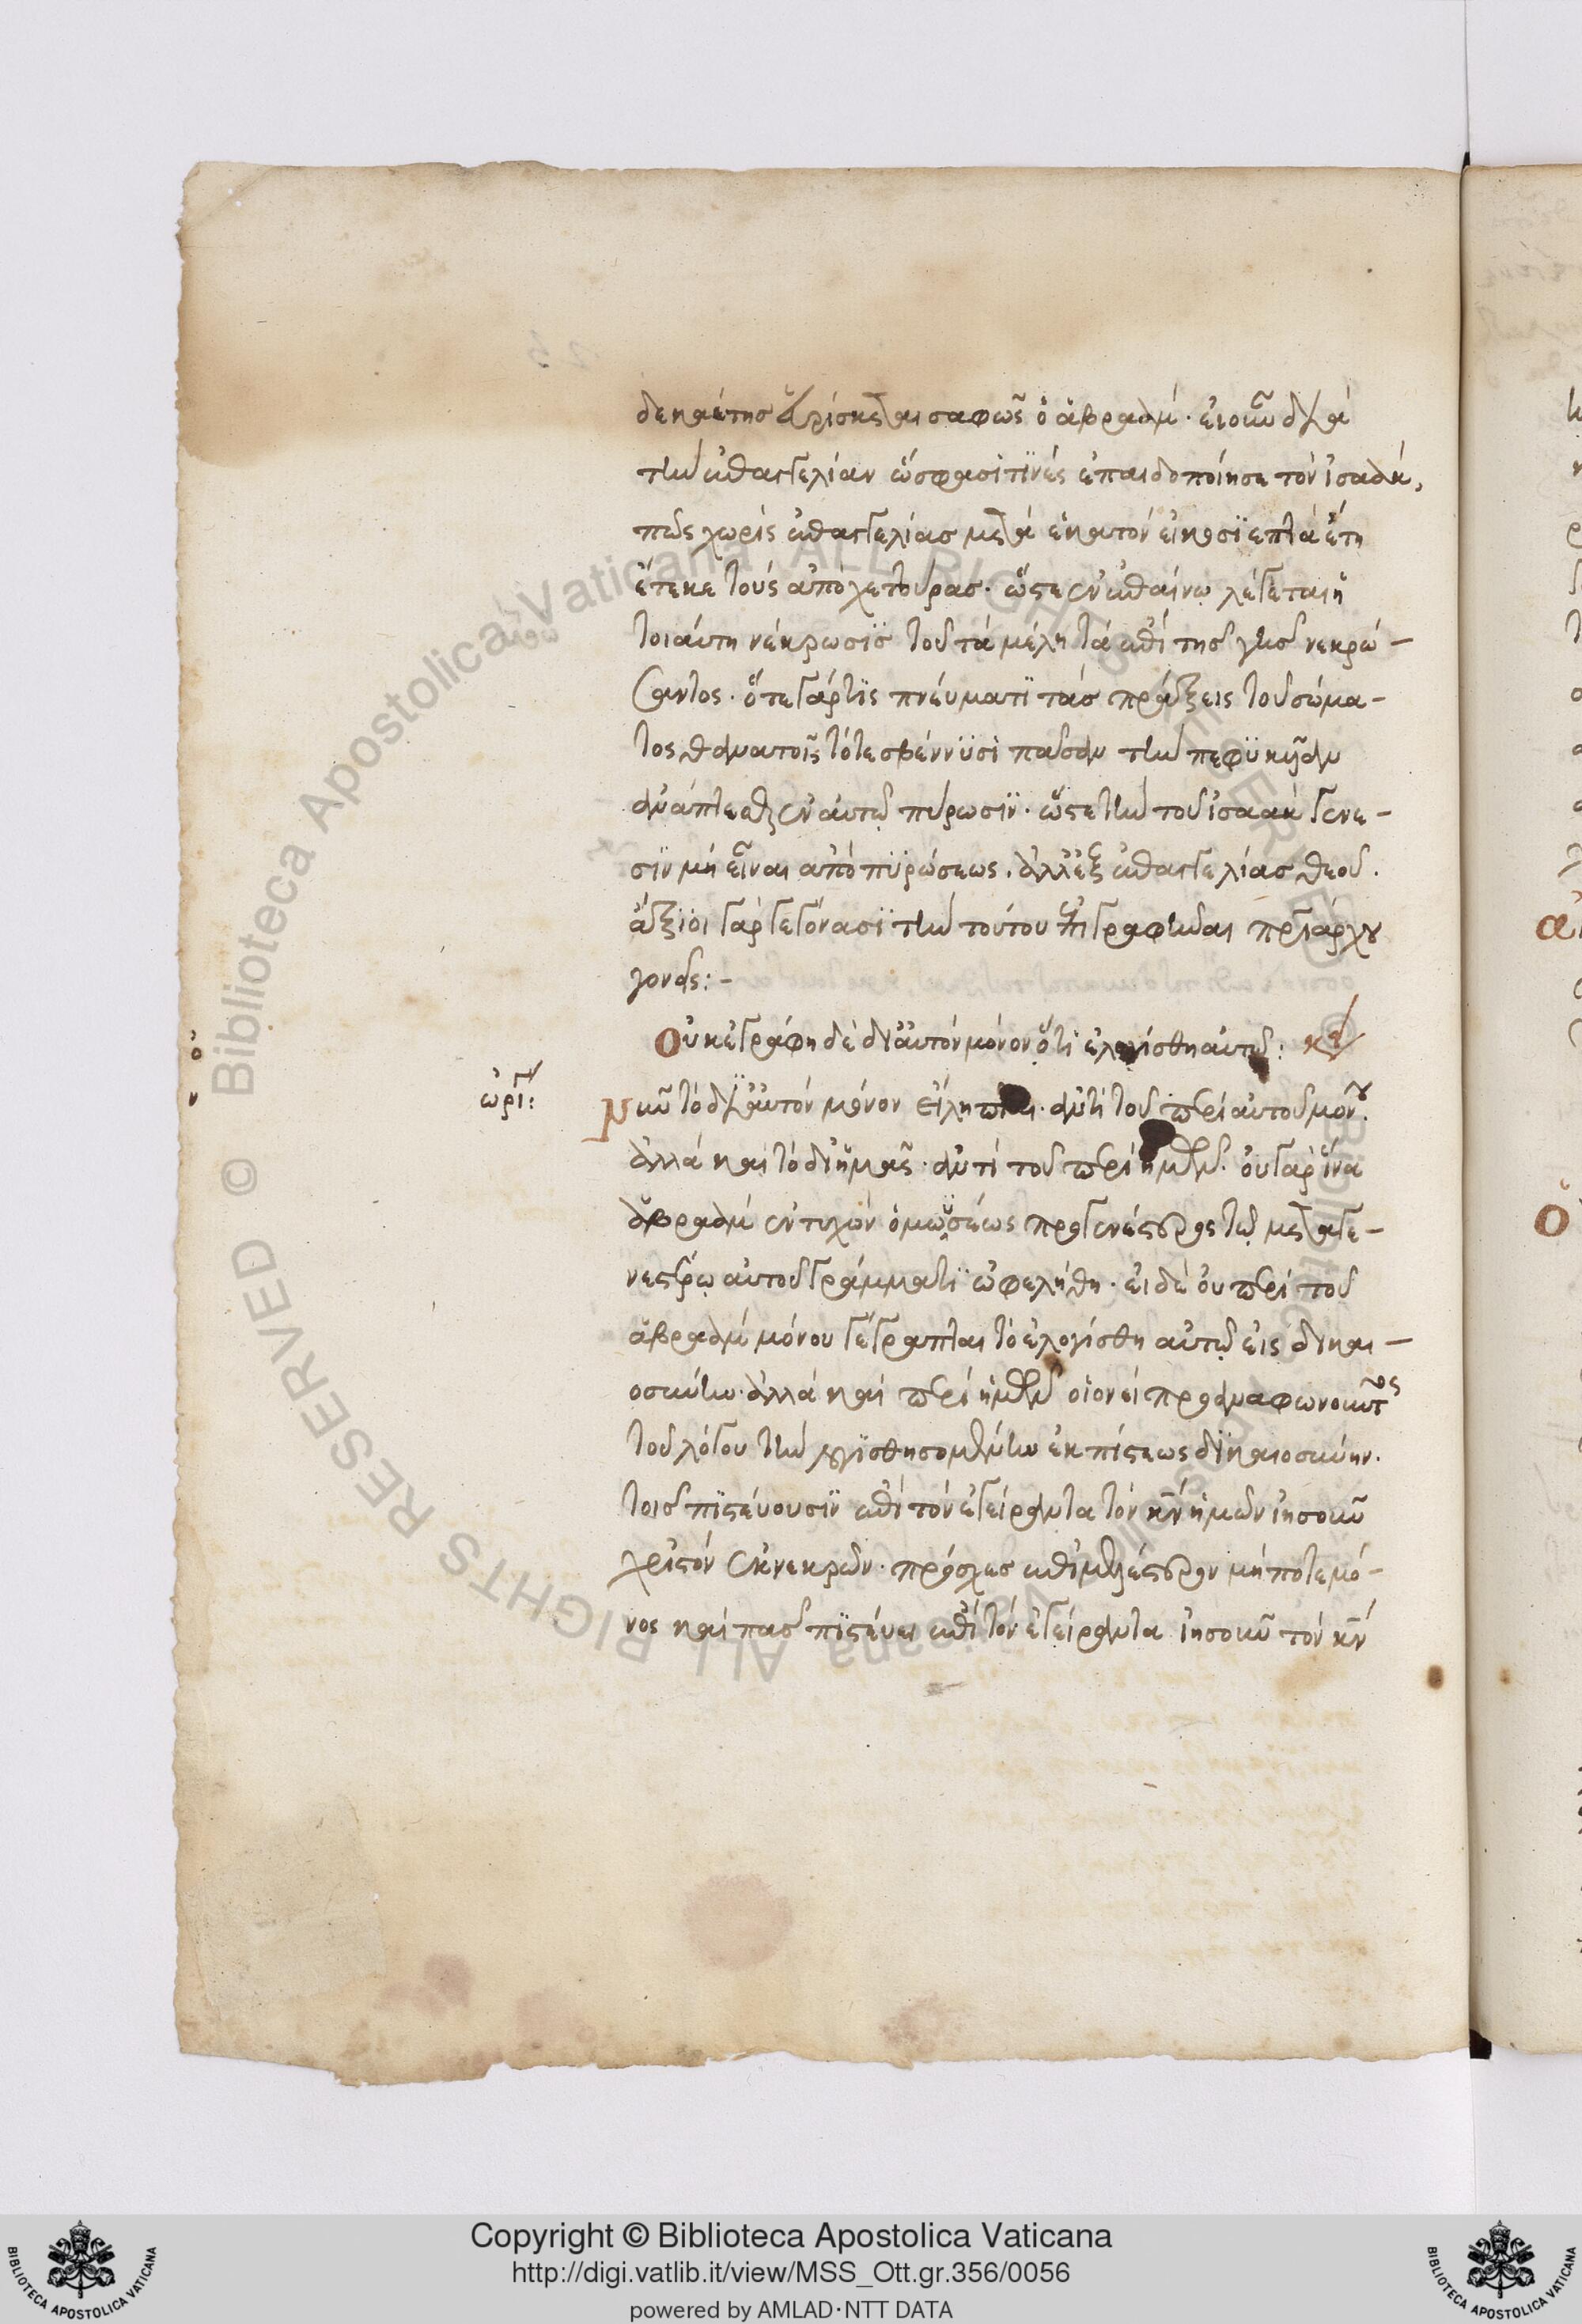 δεκαέτης εὑρίσκεται σαφῶς ὁ ἀβραάμ· εἰ οὖν διὰ
τὴν ἐπαγγελίαν ὥσφασί τινές ἐπαιδοποίησε τὸν ἰσαὰκ,
πῶς χωρὶς ἐπαγγελίας μετὰ ἑκατὸν εἴκοσι ἑπτὰ ἔτη
ἔτεκε τοὺς ἀπὸ χετούρας· ὥστε ἐν ἐπαίνῳ λέγεται ἡ
τοιαύτη νέκρωσις τοῦ τὰ μέλη τὰ ἐπὶ τῆς γῆς νεκρώ-
σαντος· ὅτε γάρ τις πνεύματι τὰς πράξεις τοῦ σώμα-
τος θανατοῖ τότε σβέννυσι πᾶσαν τὴν πεφυκυῖαν
ἀνάπτεσθαι ἐν αὐτῷ πύρωσιν· ὥστε τὴν τοῦ ἰσαὰκ γένε-
σιν μὴ εἶναι ἀπὸ πυρώσεως· ἀλλ' ἐξ ἐπαγγελίας θεοῦ.
ἄξιοι γὰρ γεγόνασι τὴν τούτου ἐπιγραφῆναι πριάρχου
γονάς:-
Οὐκ ἐγράφη δὲ δι' αὐτὸν μόνον ὅτι ἐλογίσθη αὐτῷ:
ὠρι:
Νῦν τὸ δι' αὐτὸν μόνον εἴληπται· ἀντὶ τοῦ περὶ αὐτοῦ μόνου.
ἀλλὰ καὶ τὸ δι' ἡμᾶς· ἀντὶ τοῦ περὶ ἡμῶν· οὐ γὰρ ἵνα
ἀβραὰμ ἐντυχὼν ὁ μωϋσέως προγενέστερος τῷ μεταγε-
νεστέρῳ αὐτοῦ γράμματι ὠφελήθη· εἰ δὲ οὐ περὶ τοῦ
ἀβραὰμ μόνου γέγραπται τὸ ἐλογίσθη αὐτῷ εἰς δικαι-
οσύνην· ἀλλὰ καὶ περὶ ἡμῶν οἱονεὶ προαναφωνοῦντος
τοῦ λόγου τὴν λογισθησομένην ἐκ πίστεως δικαιοσύνην.
τοῖς πιστεύουσιν ἐπὶ τὸν ἐγείραντα τὸν κν ἡμῶν ἰησοῦν
χριστὸν ἐκ νεκρῶν· πρόσχες ἐπιμελέστερον μήποτε μό-
νος καὶ πᾶς πιστεύει ἐπὶ τὸν ἐγείραντα ἰησοῦν τὸν κν
Copyright © Biblioteca Apostolica Vaticana
http://digi.vatlib.it/view/MSS_Ott.gr.356/0056
powered by AMLAD·NTT DATA